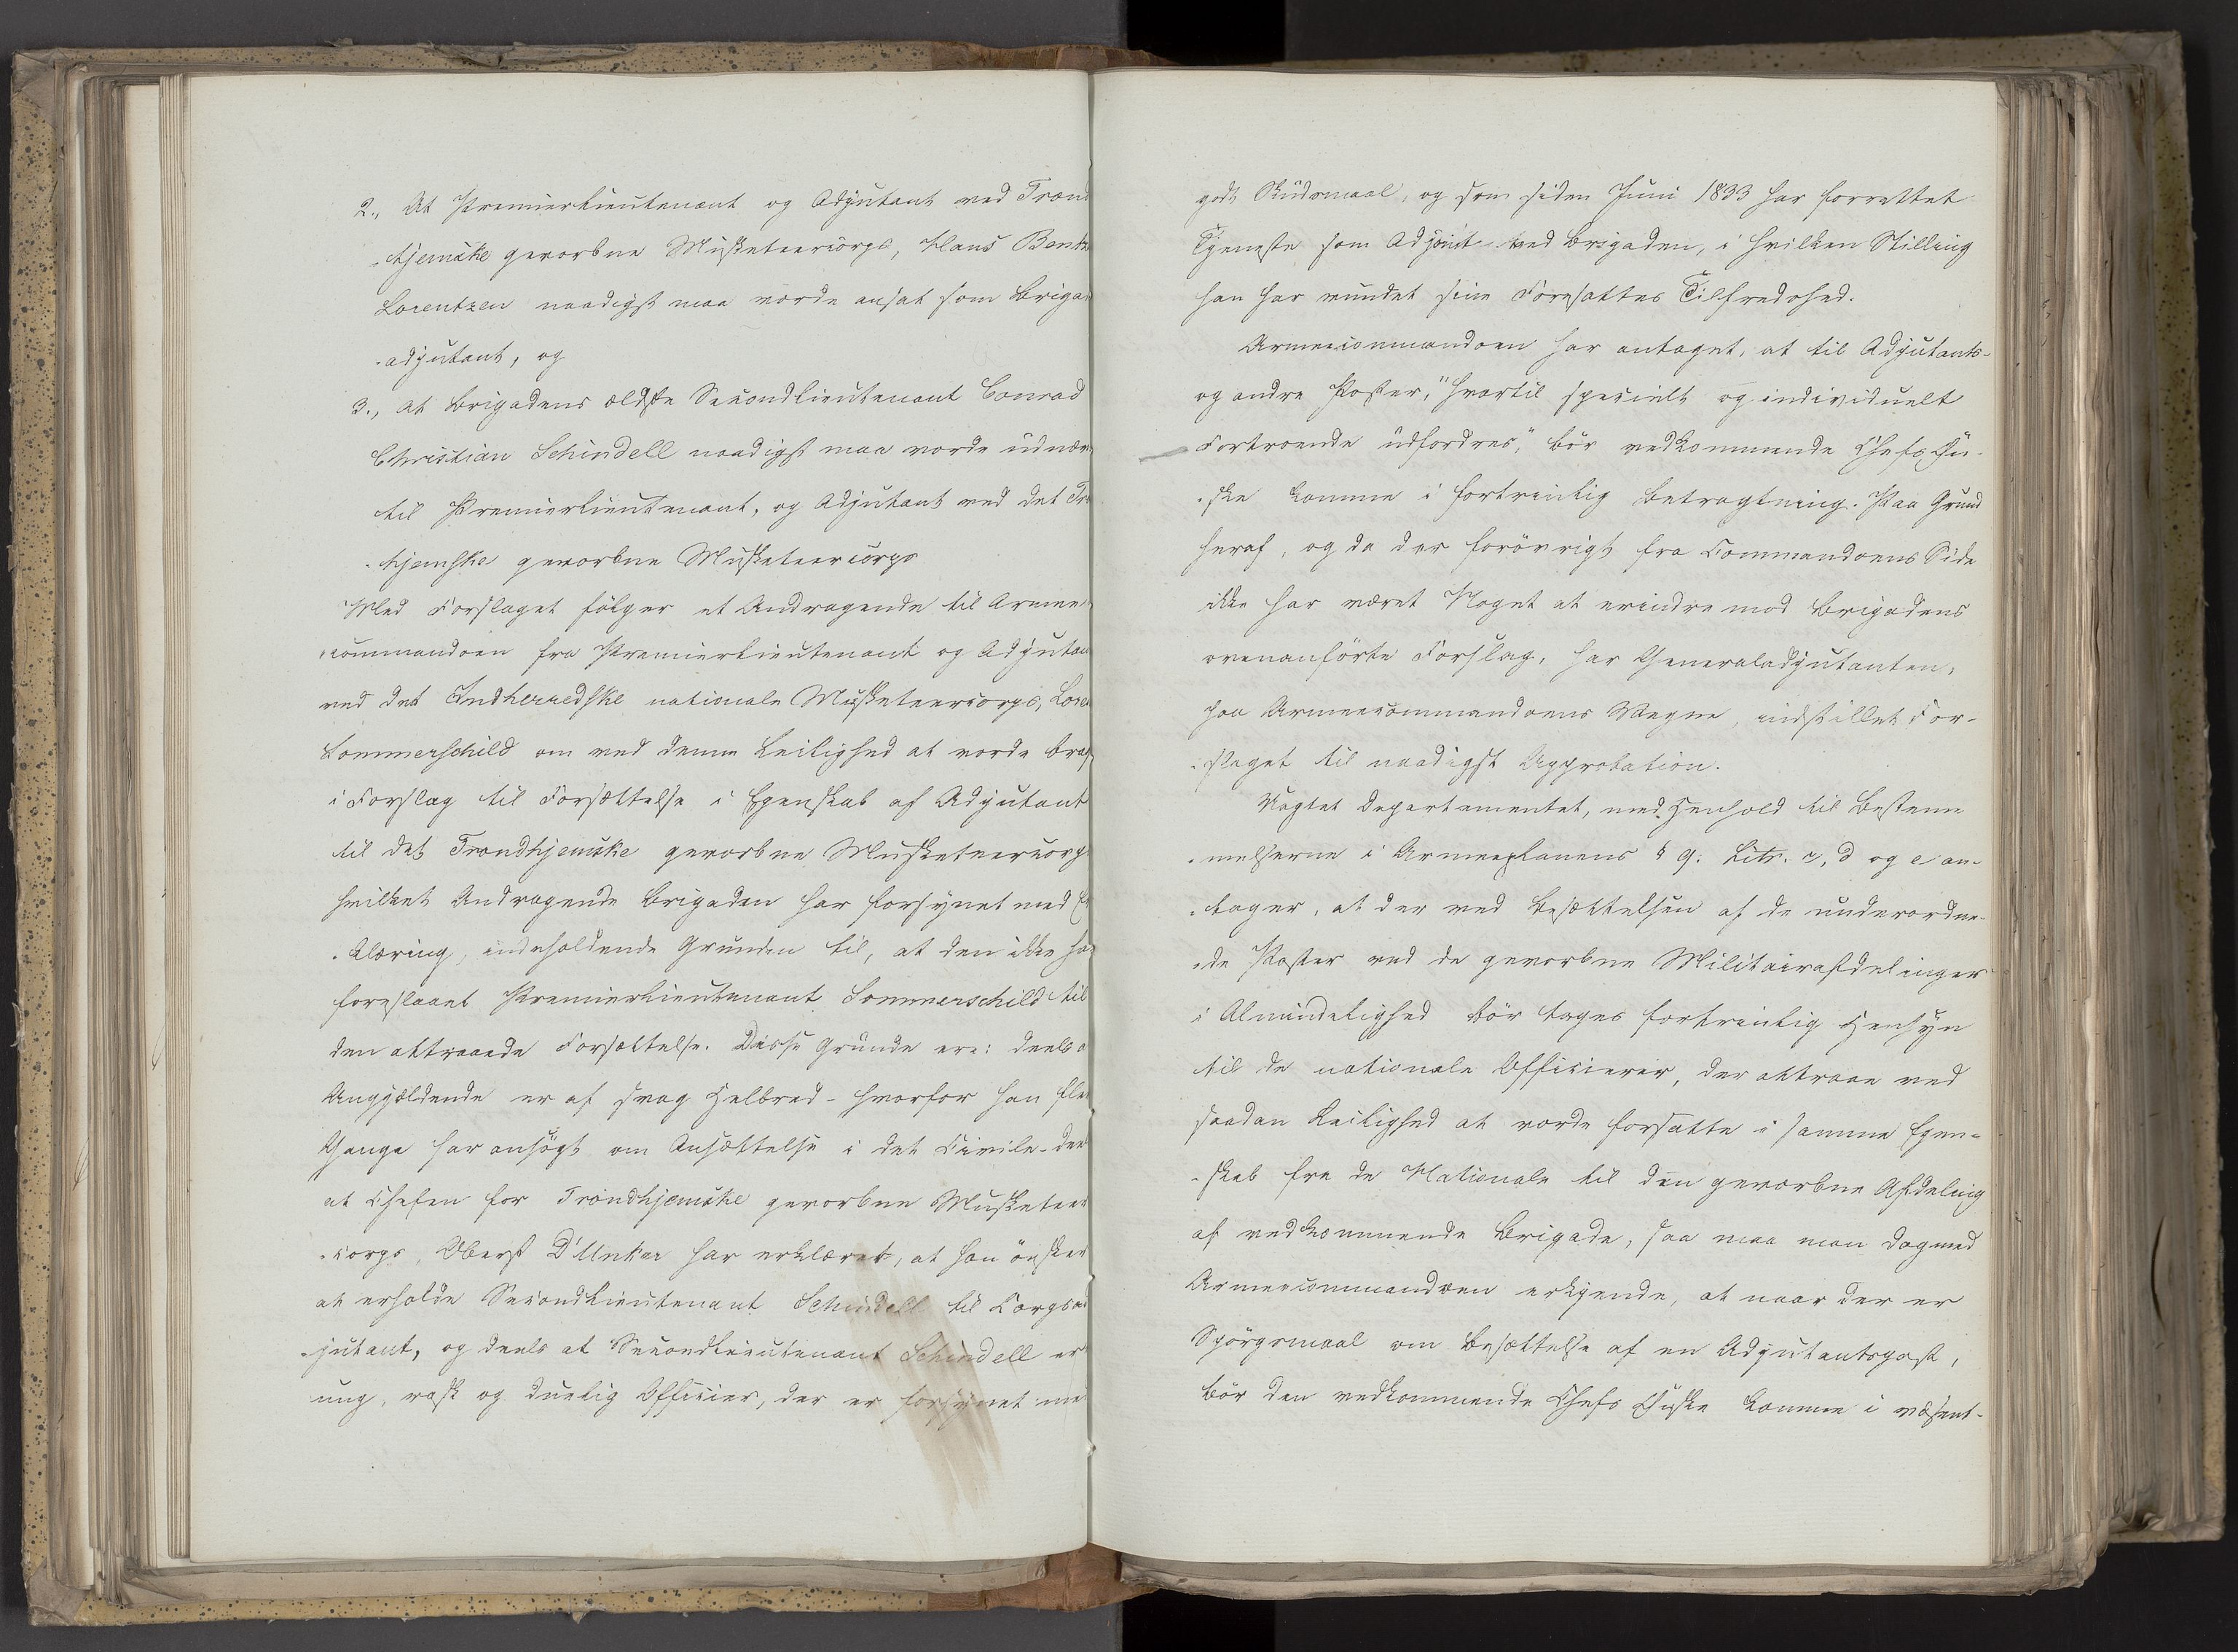 2., At Premierlieutenant og Adjutant ved Trond
-hjemske gevorbne Musketeercorps, Hans Bentz
Lorentzen naadigst maa vorde ansat som Brigad
-adjutant, og
3., at Brigadens ældste Secondlieutenant Conrad
Christian Schindell naadigst maa vorde udnæv
til Premierlieutenant, og Adjutant ved det Tr
-hjemske gevorbne Musketeercorps
Med Forslaget følger et Andragende til Armee
-commandoen fra Premierlieutenant og Adjutan
ved det Indherredske nationale Musketeercorps, Lore
Sommerschild om ved denne Leilighed at vorde brag
i Forslag til Forsættelse i Egenskab af Adjutant
til det Trondhjemske gevorbne Musketeercorps
hvilket Andragende Brigaden har forsynet med Er
-klæring, indeholdende Grunden til, at den ikke ha
foreslaaet Premierlieutenant Sommerschild til
den attraaede Forsættelse. Disse Grunde ere: deels a
Angjældende er af svag Helbred - hvorfor han fle
Gange har ansögt om Ansættelse i det Civile - dee
at Chefen for Trondhjemske gevorbne Musketeer
-corps, Oberst D'Unker har erklæret, at han önsker
at erholde Secondlieutenant Schindell til Corpsad
-jutant, og deels at Secondlieutenant Schindell er
ung, rask og duelig Officier, der er forsynet me
godt Skudsmaal, og som siden Juni 1833 har forrettet
Tjeneste som Adjoint ved Brigaden, i hvilken Stilling
han har vundet sine Foresattes Tilfredshed.
Armeecommandoen har antaget, at til Adjutants-
og andre Poster, "hvortil specielt og individuelt
Fortroende udfordres," bör vedkommende Chefs Ön-
-ske komme i fortrinlig Betragtning. Paa Grund
heraf, og da der forövrigt fra Commandoens Side
ikke har været Noget at erindre mod Brigadens
ovenanförte Forslag, har Generaladjutanten,
paa Armeecommandoens Vegne, indstillet For-
-slaget til naadigst Approbation.
Uagtet Departementet, med Henhold til Bestem
-melserne i Armeeplanens § 9. Litr. c, d og e an-
-tager, at der ved Besættelsen af de underordne-
-de Poster ved de gevorbne Militairafdelinger
i Almindelighed bör tages fortrinlig Hensyn
til de nationale Officierer, der attraae ved
saadan Leilighed at vorde forsatte i samme Egen-
-skab fra de Nationale til den gevorbne Afdeling
af vedkommende Brigade, saa maa man dog med
Armeecommandoen erkjende, at naar der er
Spörgsmaal om Besættelse af en Adjutantspost,
bör den vedkommende Chefs Önske komme i væsent-